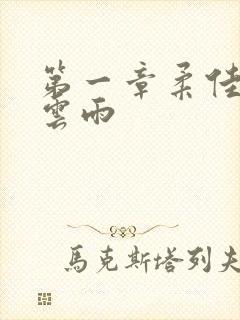 第一章柔佳
雲雨
馬克斯塔列夫